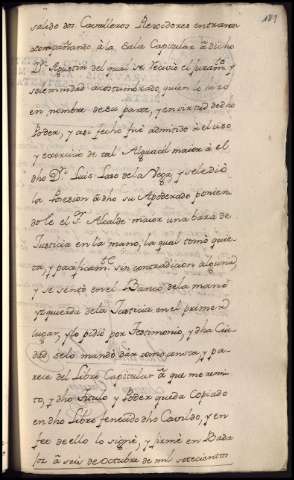 189
salido dos Cavalleros Rexidores entraron
acompañando à la Sala Capitular à dicho
Dn. Agustin del qual se recivio el juramto. y
solemnidad acostumbrado, quien lo hizo
en nombre de su parte, y en virtud de dho
Poder, y asi fecho fue admitido à el uso
y exercicio de tal Alguacil maior à el
dho Dn. Luis Laso de la Vega, y se le diò
la Posesion à dho su Apoderado ponien-
dole el Sr. Alcalde maior una bara de
Justicia en la mano, la qual tomò quie-
ta, y pacificamte. sin contradicion alguna,
y se sentò en el Banco de la mano
yzquierda de la Justicia en el primer
lugar, y lo pidiò por testimonio, y dha Ciu-
dad se lo mandò dàr como consta, y pa-
rece del Libro Capitular à que me remi-
to, y dho Titulo, y Poder queda Copiado
en dho Libro fenecido dho Cavildo, y en
fee de ello lo signè, y firmè en Bada-
joz à seis de Octubre de mil setecientos